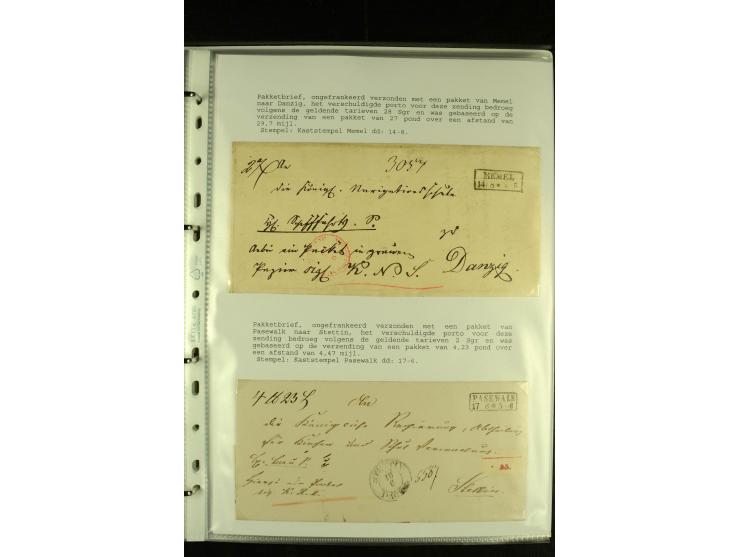 Pakketbrief, ongefrankeerd verzonden met een pakket van Memel
naar Danzig, het verschuldigde porto voor deze zending bedroeg
volgens de geldende tarieven 28 Sgr en was gebaseerd op de
verzending van een pakket van 27 pond over een afstand van
29,7 mijl.
Stempel: Kaststempel Memel dd: 14-8.
An 3057
MEMEL
die Königl. Navigationsschule
Schifffahrts S.
zu
ein Packet in grauem
Papier sigl K. N. S. Danzig.
Pakketbrief, ongefrankeerd verzonden met een pakket van
Pasewalk naar Stettin, het verschuldigde porto voor deze
zending bedroeg volgens de geldende tarieven 2 Sgr en was
gebaseerd op de verzending van een pakket van 4,23 pond over
een afstand van 4,47 mijl.
Stempel: Kaststempel Pasewalk dd: 17-6.
An
PASEWALK
die Königliche Regierung, Abtheilung
für Kirchen und Schul
Stettin